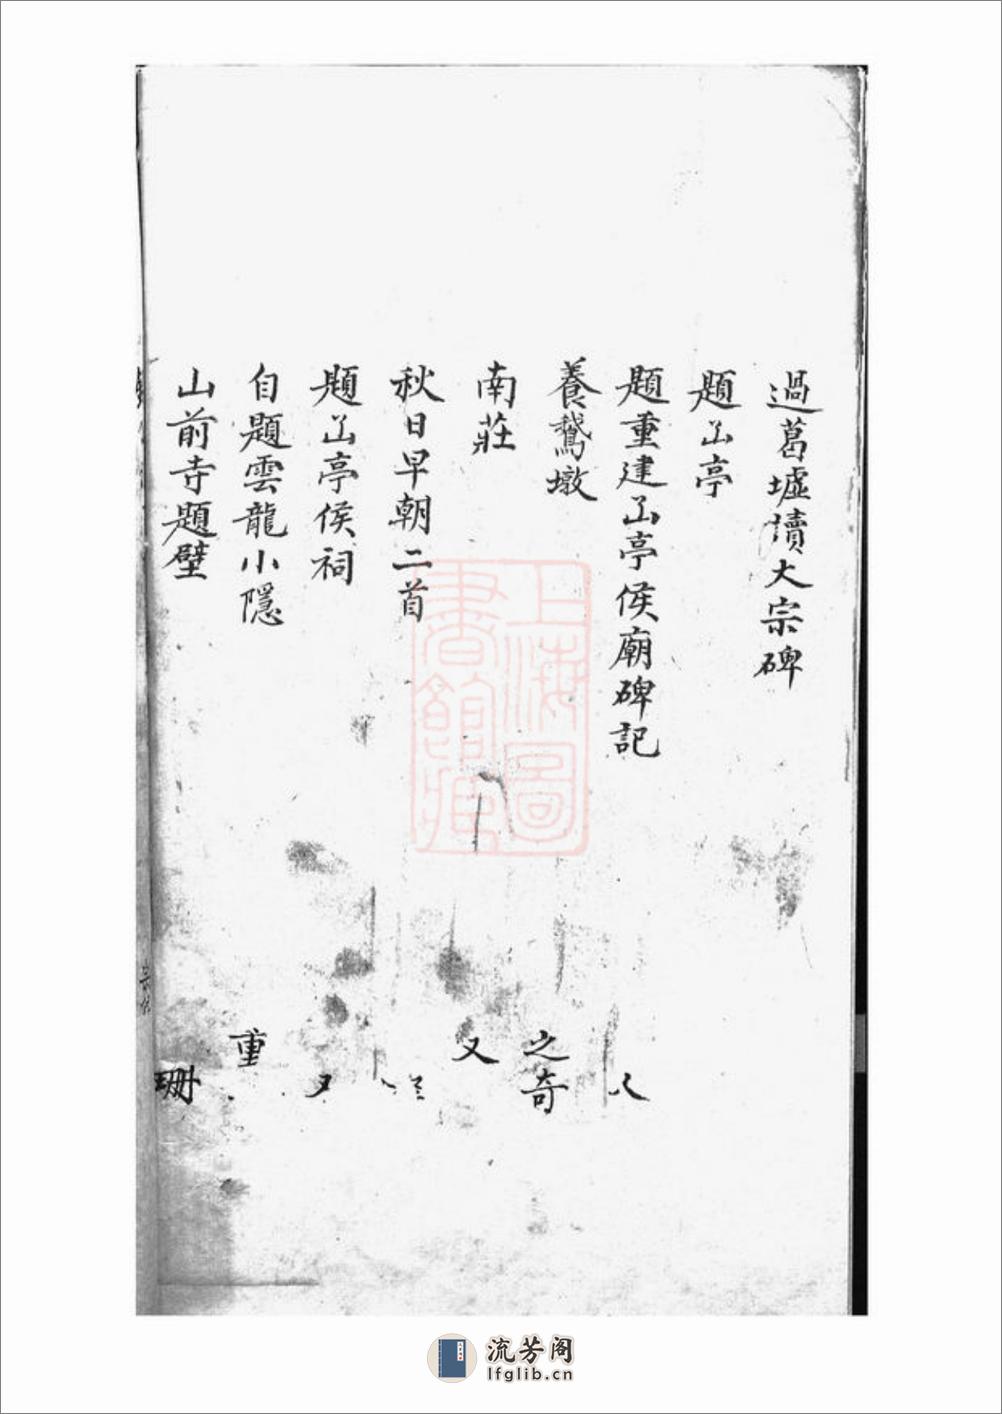 過葛墟讀大宗碑
題亭
題重建亭侯廟碑記
養鵞墩
南莊
秋日早朝二首
題亭侯祠
自題雲龍小隱
山前寺題壁
之奇
又
重
珊
上海圖書館藏
流芳阁
lfglib.cn